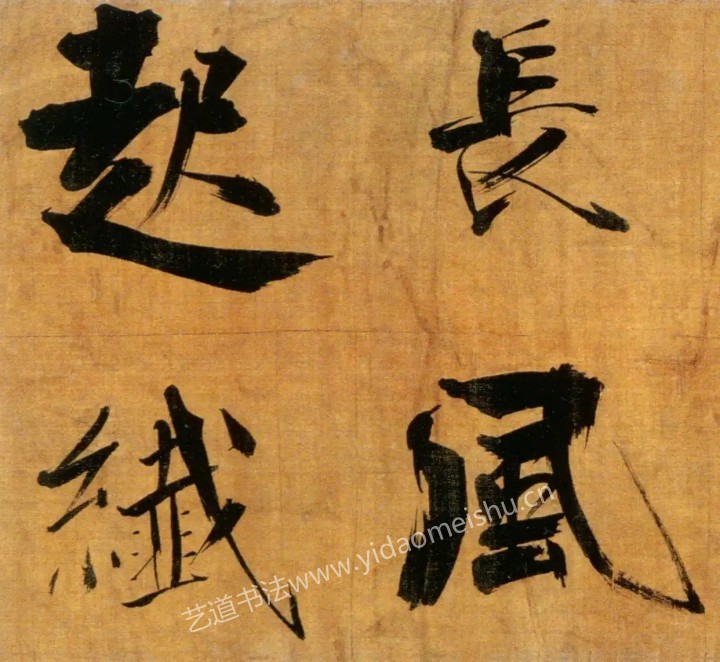 長風
起纖
艺道书法www.yidaomeishu.cn